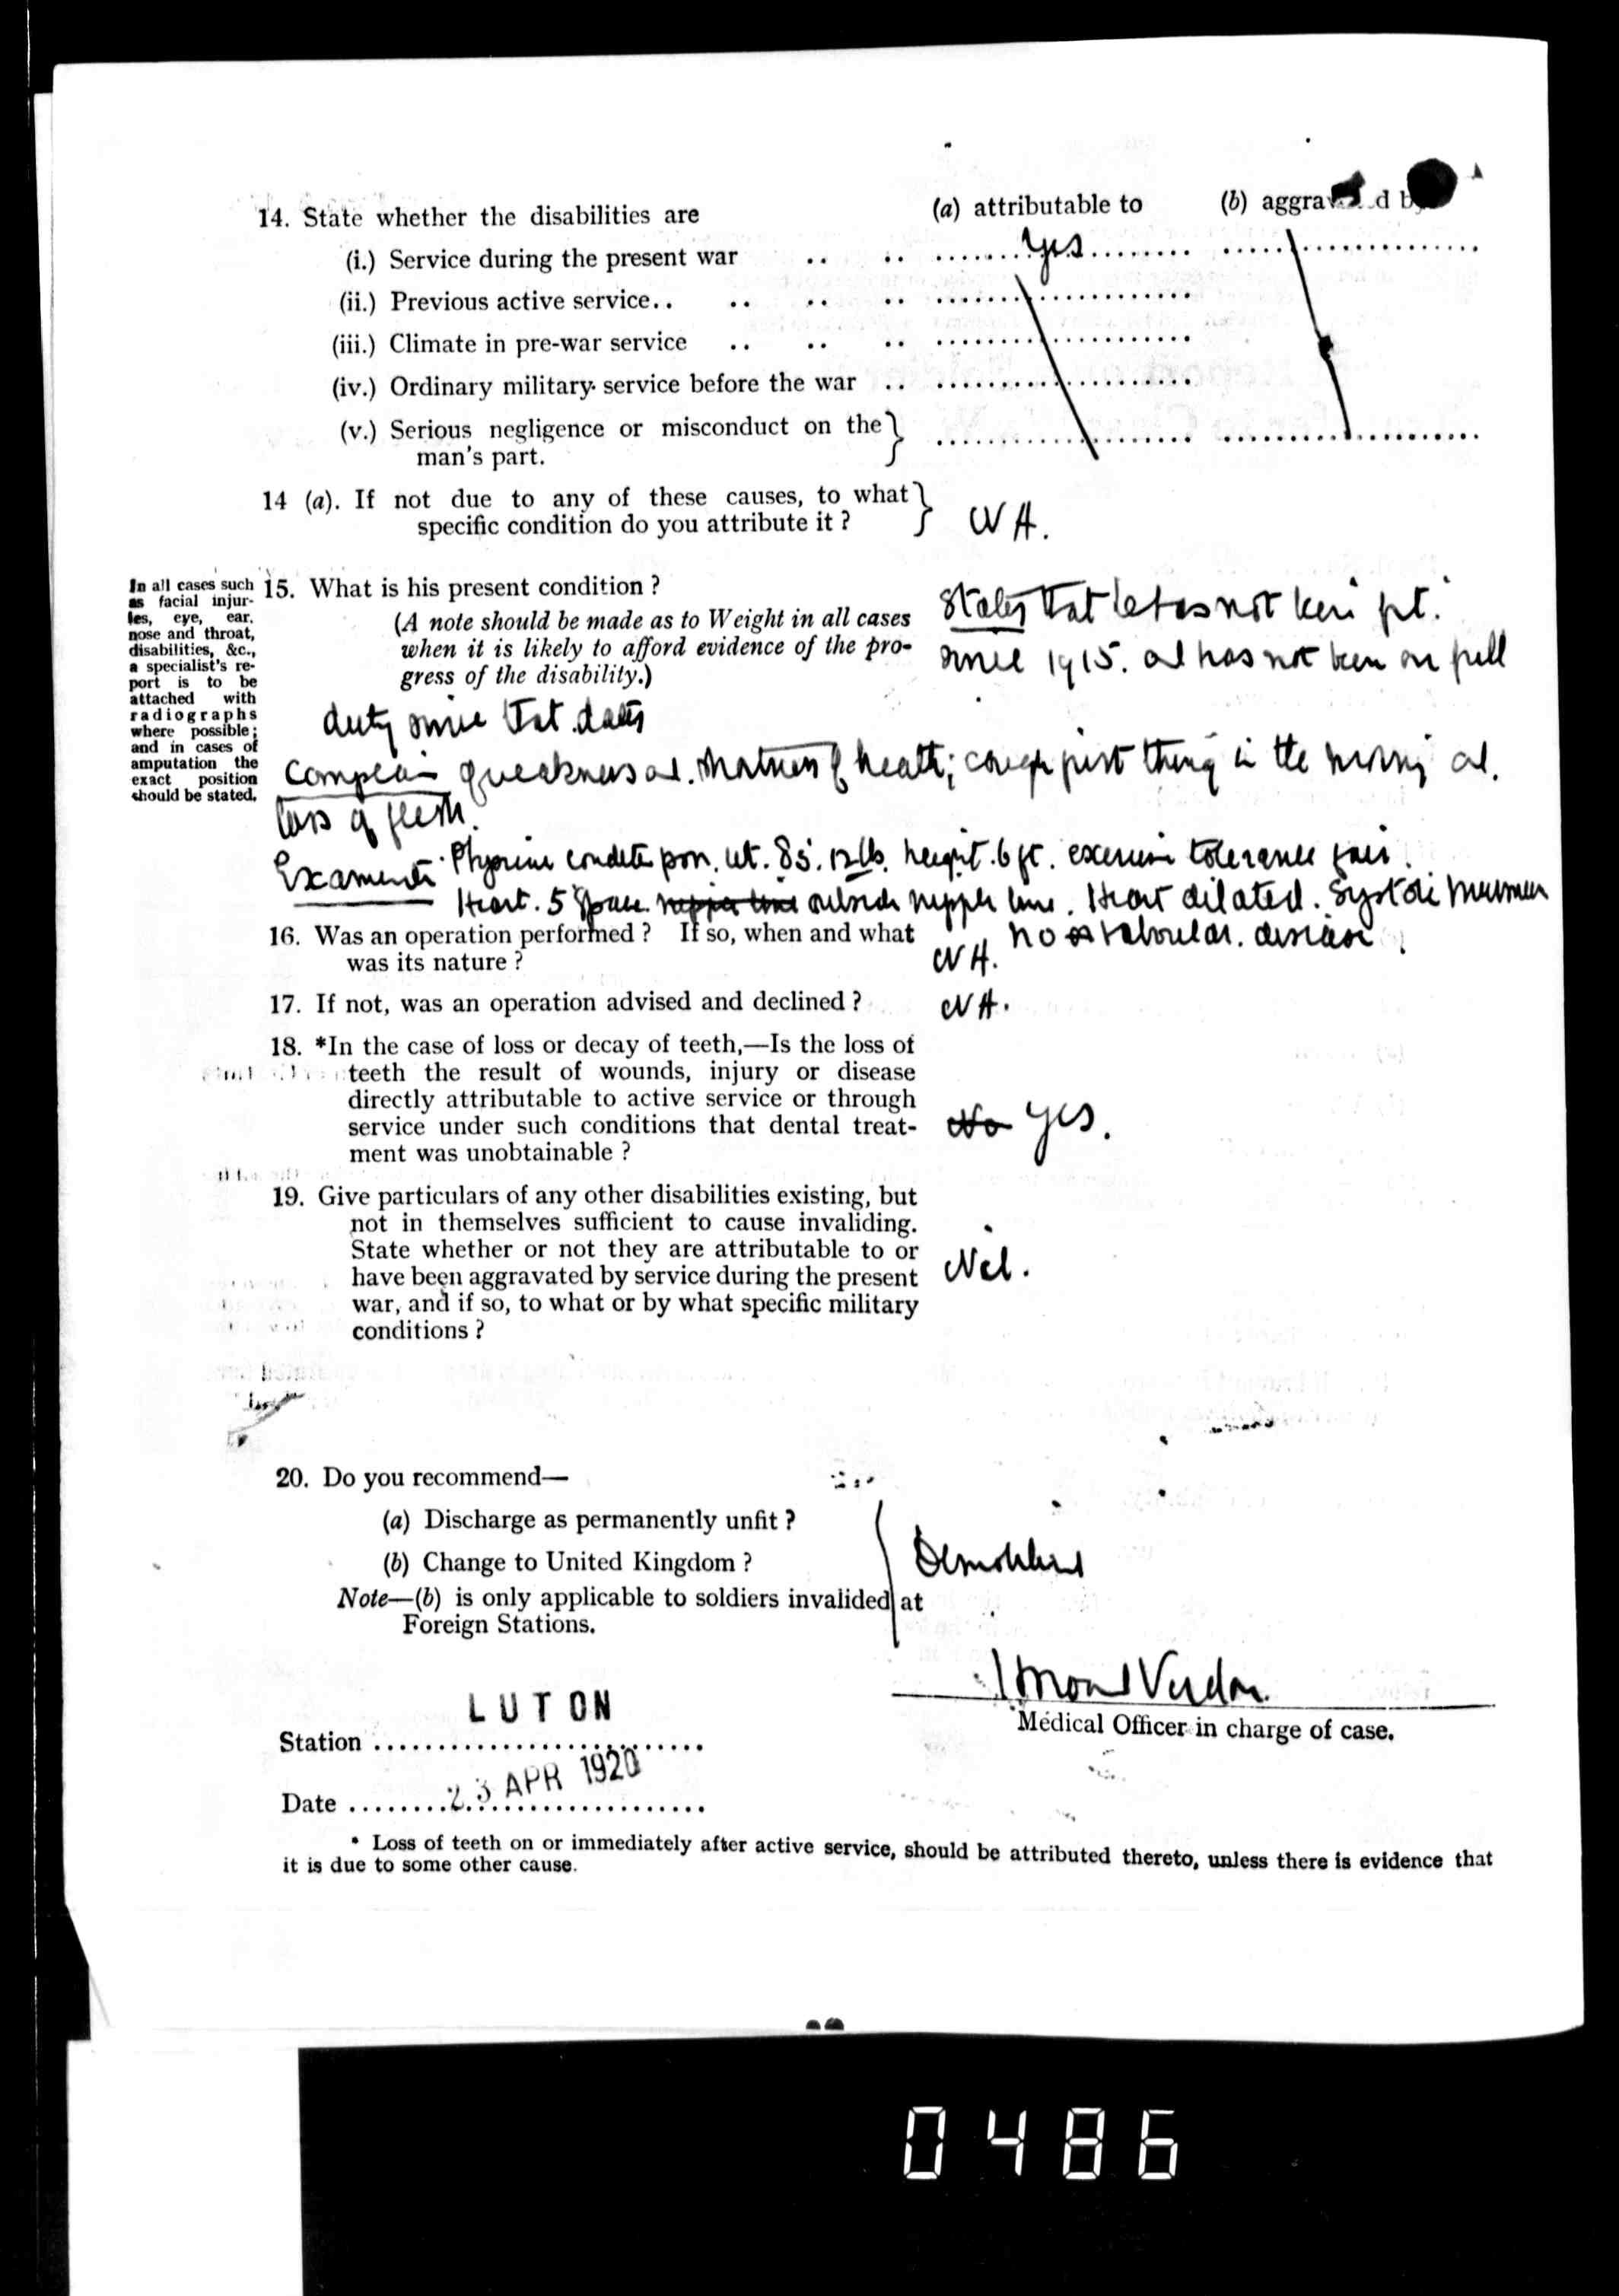 14. State whether the disabilities are (a) attributable to (b) aggra d by
(i.) Service during the present war .. .. Yes
(ii.) Previous active service.. .. .. ..
(iii.) Climate in pre-war service .. .. ..
(iv.) Ordinary military service before the war ..
(v.) Serious negligence or misconduct on the
man's part.
14 (a). If not due to any of these causes, to what
specific condition do you attribute it ? NA.
In all cases such
as facial injur-
ies, eye, ear,
nose and throat,
disabilities, &c.,
a specialist's re-
port is to be
attached with
radiographs
where possible;
and in cases of
amputation the
exact position
should be stated.
15. What is his present condition ?
(A note should be made as to Weight in all cases
when it is likely to afford evidence of the pro-
gress of the disability.)
States that he has not been fit
since 1915. and has not been on full
duty since that date
Complain of weakness and shortness of health; cough first thing in the morning and
loss of flesh.
Examined Physique condition poor. wt. 8st. 12lbs. height. 6 ft. exercise tolerance fair.
Heart. 5 Space nipple line outside nipple line. Heart dilated. Systolic murmur
no valvular disease.
16. Was an operation performed ? If so, when and what
was its nature ? NA.
17. If not, was an operation advised and declined ? NA.
18. *In the case of loss or decay of teeth,—Is the loss of
teeth the result of wounds, injury or disease
directly attributable to active service or through
service under such conditions that dental treat-
ment was unobtainable ? No Yes.
19. Give particulars of any other disabilities existing, but
not in themselves sufficient to cause invaliding.
State whether or not they are attributable to or
have been aggravated by service during the present
war, and if so, to what or by what specific military
conditions ? Nil.
20. Do you recommend—
(a) Discharge as permanently unfit ?
(b) Change to United Kingdom ?
Note—(b) is only applicable to soldiers invalided at
Foreign Stations.
LUTON
Station
Medical Officer in charge of case.
23 APR 1920
Date
* Loss of teeth on or immediately after active service, should be attributed thereto, unless there is evidence that
it is due to some other cause.
0486